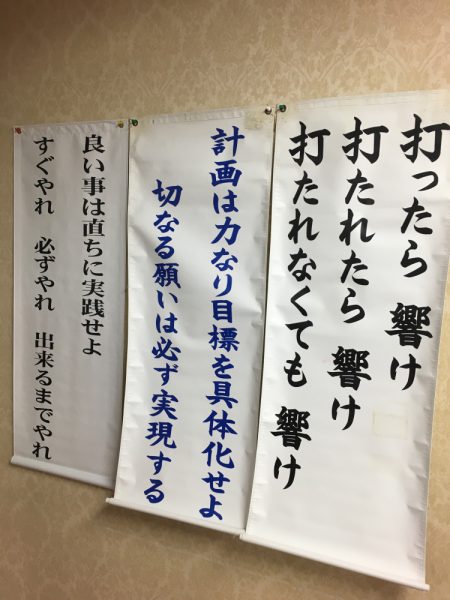 打ったら 響け
打たれたら 響け
打たれなくても 響け
計画は力なり目標を具体化せよ
切なる願いは必ず実現する
良い事は直ちに実践せよ
すぐやれ 必ずやれ 出来るまでやれ